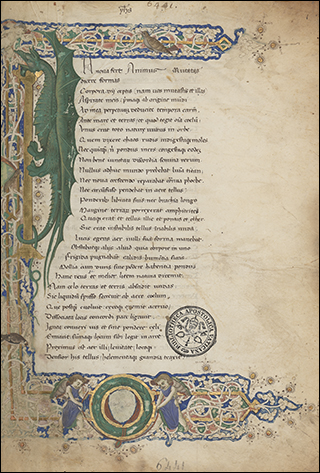 6441.
IN nova fert Animus mutatas
dicere formas
Corpora. dii ceptis / nam vos mutastis et illas
Aspirate meis / primaq; ab origine mundi
Ad mea perpetuum deducite tempora carmen
Ante mare et terras et quod tegit omnia celum
Unus erat toto nature vultus in orbe
Quem dixere chaos rudis indigestaq; moles
Nec quicq; nisi pondus iners congestaq; eodem
Non bene iunctarum discordia semina rerum
Nullus adhuc mundo prebebat lumina titan
Nec nova crescendo reparabat cornua phoebe
Nec circumfuso pendebat in aere tellus
Ponderibus librata suis nec brachia longo
Margine terrarum porrexerat amphitrite
Quaq; erat et tellus illic et pontus et ether
Sic erat instabilis tellus inabilis unda
Lucis egens aer nulli sua forma manebat
Obstabatq; aliis aliud quia corpore in uno
Frigida pugnabant calidis humentia siccis
Mollia cum duris sine pondere habentia pondus
Hanc deus et melior litem natura diremit
Nam celo terras et terris abscidit undas
Et liquidum spisso secrevit ab aere celum
Que postq; evoluit cecoq; exemit acervo
Dissociata locis concordi pace ligavit
Ignea convexi vis et sine pondere celi
Emicuit summaq; locum sibi legit in arce
Proximus est aer illi levitate locoq;
Densior his tellus elementaq; grandia traxit
BIBLIOTHECA APOSTOLICA VATICANA
6441